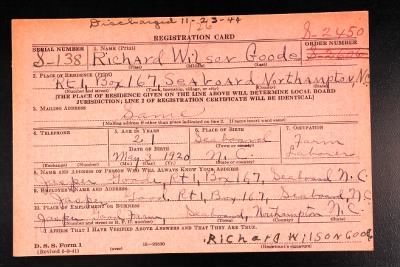 Discharged 11-23-44
26
S-2450
REGISTRATION CARD
SERIAL NUMBER 1. NAME (Print) ORDER NUMBER
S-138 Richard Wilson Goode
(First) (Middle) (Last)
2. PLACE OF RESIDENCE (Print)
Rt 1, Box 167, Seaboard Northampton, N.C.
(Number and street) (Town, township, village, or city) (County) (State)
[THE PLACE OF RESIDENCE GIVEN ON THE LINE ABOVE WILL DETERMINE LOCAL BOARD
JURISDICTION; LINE 2 OF REGISTRATION CERTIFICATE WILL BE IDENTICAL]
3. MAILING ADDRESS
Same
[Mailing address if other than place indicated on line 2. If same insert word same]
4. TELEPHONE 5. AGE IN YEARS 6. PLACE OF BIRTH 7. OCCUPATION
21 Seaboard Farm
DATE OF BIRTH (Town or county)
May 1920 N.C. Laborer
(Exchange) (Number) (Mo.) (Day) (Yr.) (State or country)
8. NAME AND ADDRESS OF PERSON WHO WILL ALWAYS KNOW YOUR ADDRESS
Jasper Goode, Rt 1, Box 167, Seaboard, N.C.
9. EMPLOYER'S NAME AND ADDRESS
Jasper Goode, Rt 1, Box 167, Seaboard, N.C.
10. PLACE OF EMPLOYMENT OR BUSINESS
Jasper Farm, Seaboard, Northampton N.C.
(Number and street or R. F. D. number) (Town) (County) (State)
I AFFIRM THAT I HAVE VERIFIED ABOVE ANSWERS AND THAT THEY ARE TRUE.
D. S. S. Form 1
Richard Wilson Goode
(Registrant's signature)